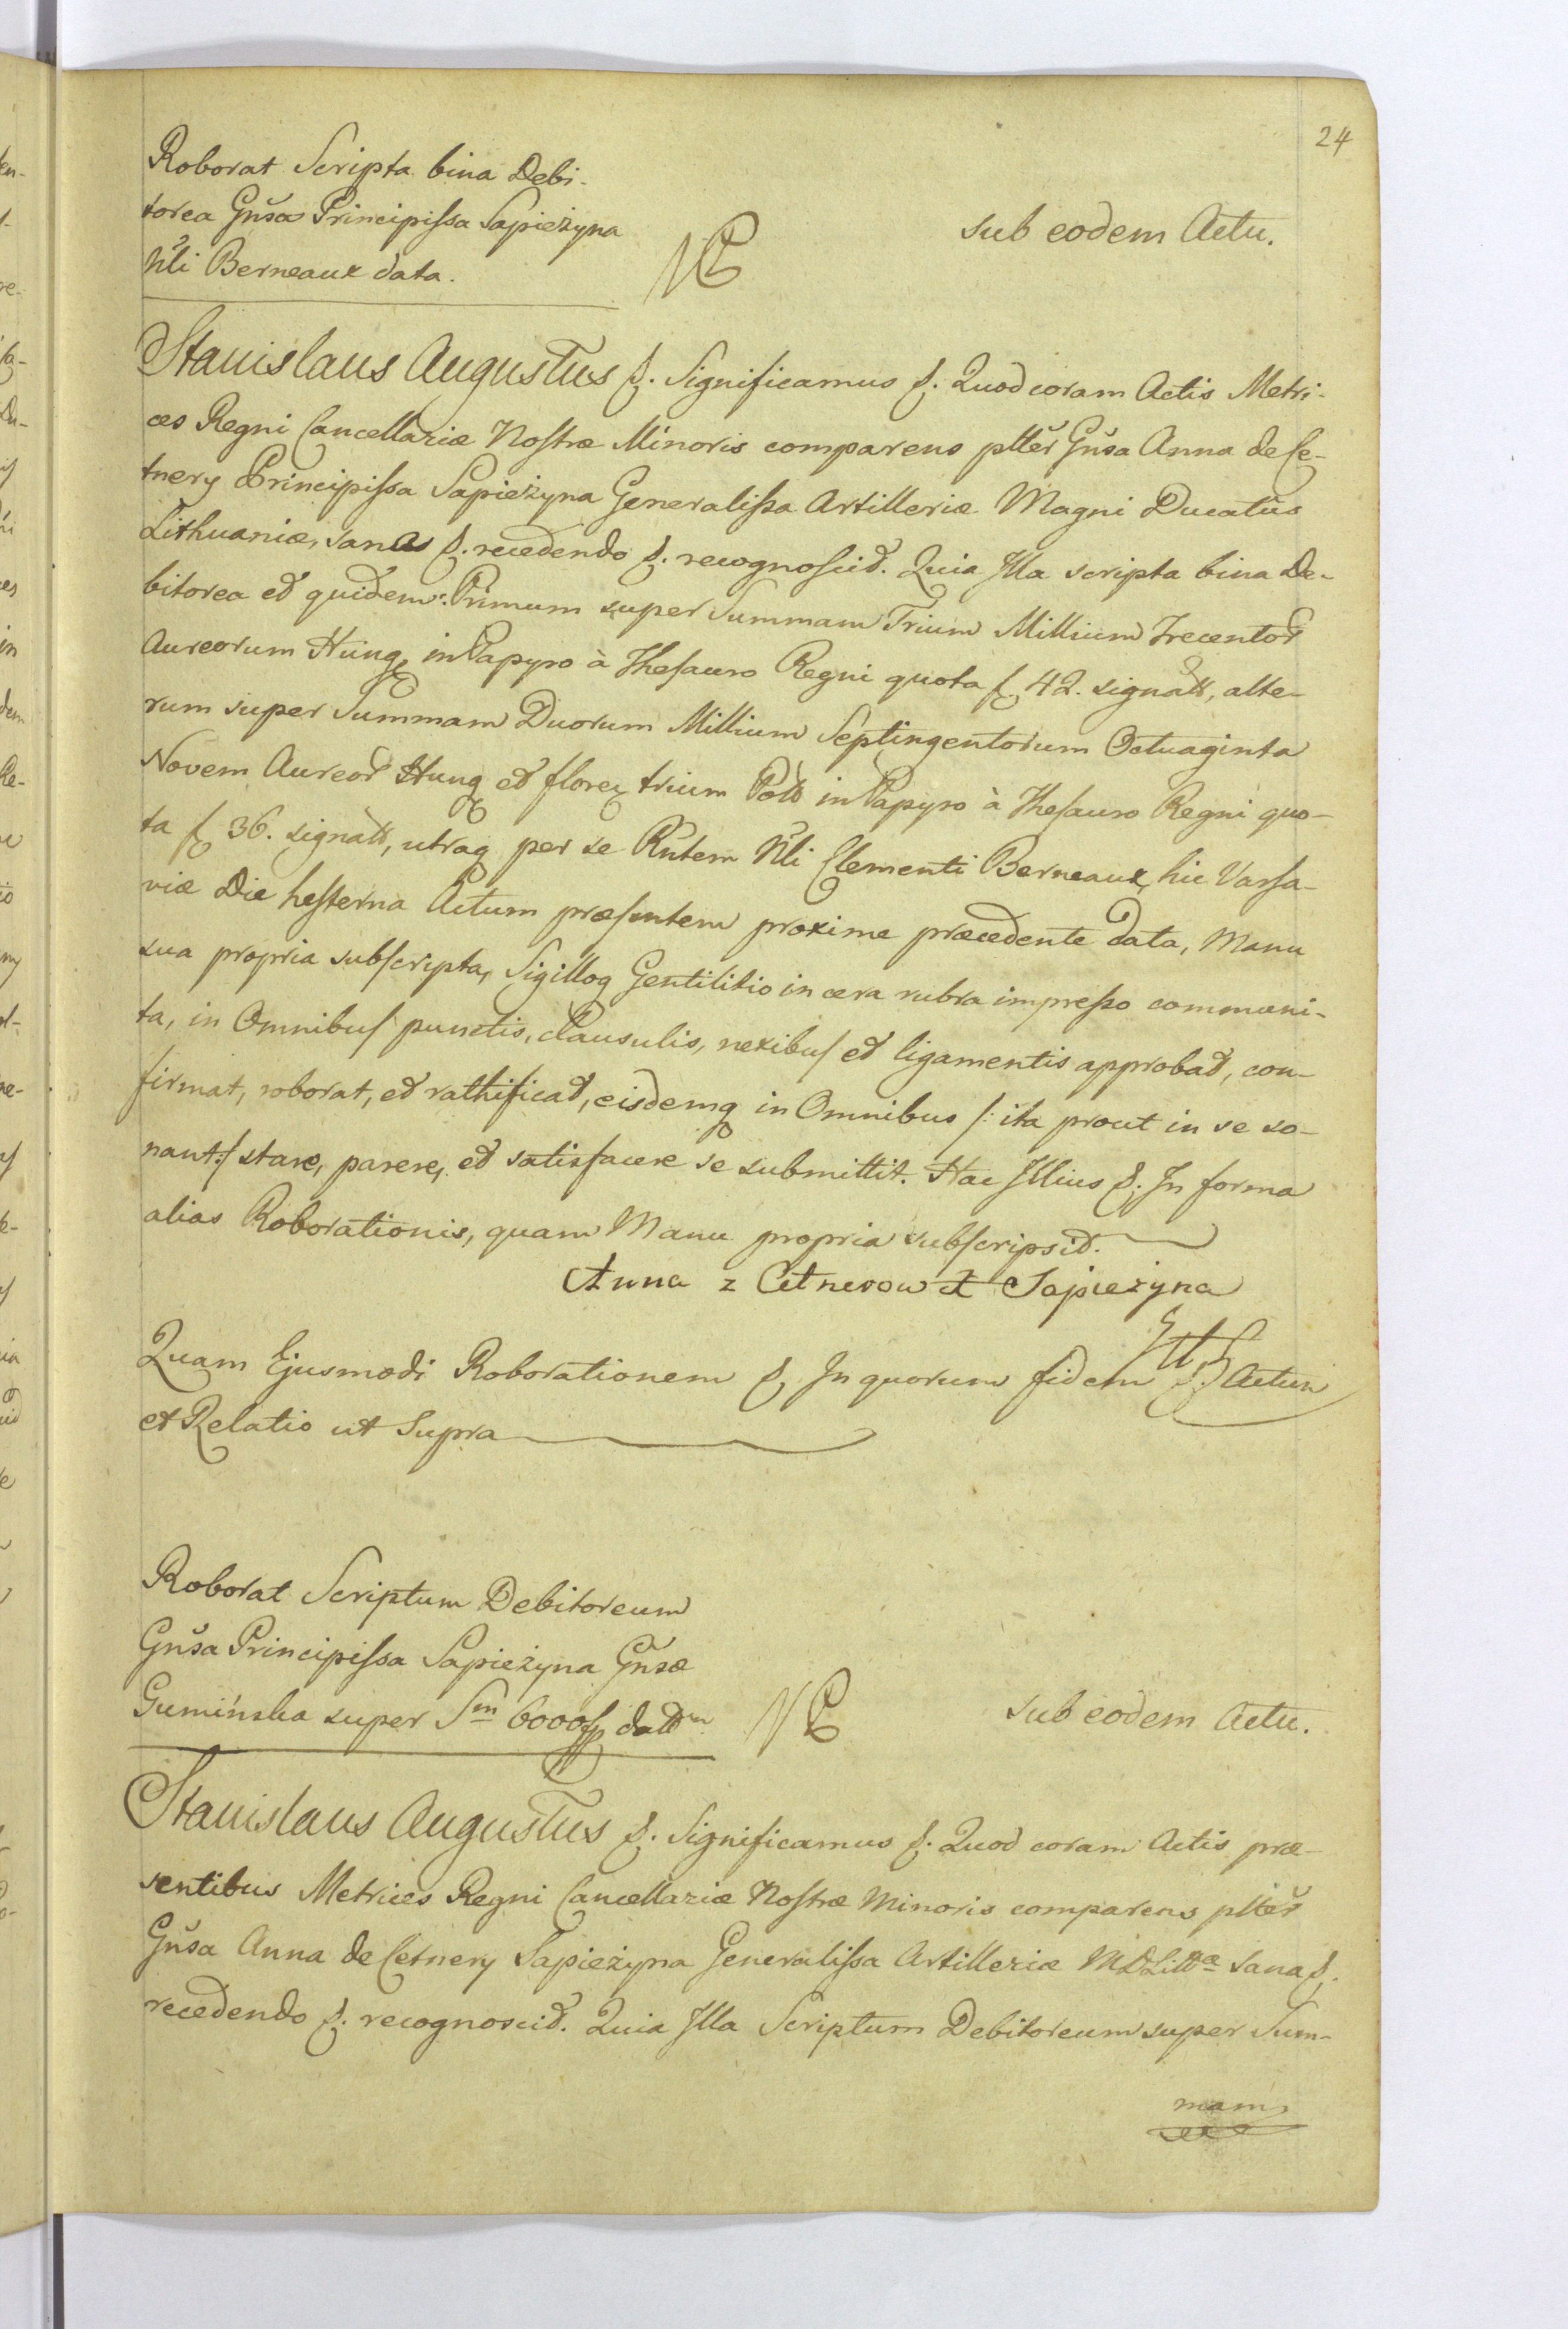 24
Roborat Scripta bina Debi-
torea Gnsa Principissa Sapieżyna
Nli Berneaux data.
sub eodem Actu.
Stanislaus Augustus &. Significamus &. Quod coram Actis Metri-
ces Regni Cancellariæ Nostræ Minoris comparens plter Gnsa Anna de Ce-
tnery Principissa Sapieżyna Generalissa Artilleriæ Magni Ducatus
Lithuaniæ, sana &. recedendo &. recognoscit. Quia Illa scripta bina De-
bitorea et quidem: Primum super Summam Trium Millium Trecentor
Aureorum Hung, in Papyro à Thesauro Regni quota f 42. signatt, alte-
rum super Summam Duorum Millium Septingentorum Octuaginta
Novem Aureor Hung et floren trium Poll in Papyro à Thesauro Regni quo-
ta f 36. signatt, utraq per se Rntem Nli Clementi Berneaux, hic Varsa-
viæ Die hesterna Actum præsentem proxime præcedente data, Manu
sua propria subscripta, Sigilloq Gentilitio in cera rubra impresso communi-
ta, in Omnibus punctis, Clausulis, nexibus et ligamentis approbat, con-
firmat, roborat, et rathificat, eisdemq in Omnibus /: ita prout in se so-
nant :/ stare, parere, et satisfacere se submittit. Hac Illius &. In forma
alias Roborationis, quam Manu propria subscripsit.
Anna z Cetnerow X Sapieżyna
Quam Ejusmodi Roborationem & In quorum fidem &. Actum
et Relatio ut Supra
Roborat Scriptum Debitoreum
Gnsa Principissa Sapieżyna Gnsæ
Gumińska super Sm 6000 fp datt m
sub eodem Actu.
Stanislaus Augustus &. Significamus &. Quod coram Actis præ-
sentibus Metrices Regni Cancellariæ Nostræ Minoris comparens plter
Gnsa Anna de Cetnery Sapieżyna Generalissa Artilleriæ MDLittæ sana &.
recedendo &. recognoscit. Quia Illa Scriptum Debitoreum super Sum-
mam